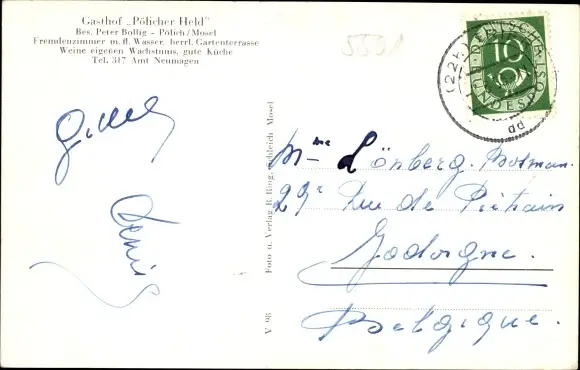 Gasthof „Pölicher Held"
Bes. Peter Bollig - Pölich/Mosel
Fremdenzimmer m. fl. Wasser, herrl. Gartenterrasse
Weine eigenen Wachstums, gute Küche
Tel. 317 Amt Neumagen
10
DEUTSCHE BUNDESPOST
(22b)
Denis
Foto u. Verlag B. Ring, Schleich Mosel
V 98
Mme Lönberg. Bosman.
29 Rue de Piétrain
Jodoigne.
Belgique.